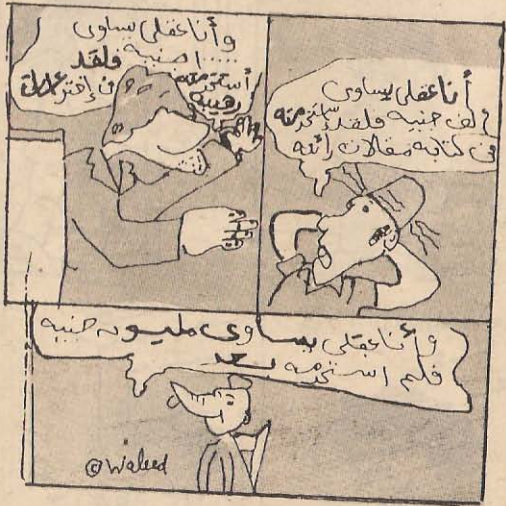 أنا عقلي يساوى
ألف جنيه ولقد إستخدمته
فى كتابة مقالات رائعه
وأنا عقلي يساوى
..... ا جنيه ولقد
أستخدمته فى إختراعات
رهيبه
وأنا عقلي يساوى مليون جنيه
فلم استخدمه بعد
© Waleed